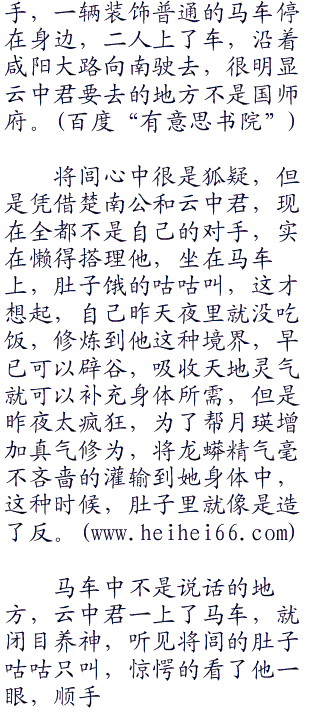 手，一辆装饰普通的马车停
在身边，二人上了车，沿着
咸阳大路向南驶去，很明显
云中君要去的地方不是国师
府。(百度“有意思书院”)
将闾心中很是狐疑，但
是凭借楚南公和云中君，现
在全都不是自己的对手，实
在懒得搭理他，坐在马车
上，肚子饿的咕咕叫，这才
想起，自己昨天夜里就没吃
饭，修炼到他这种境界，早
已可以辟谷，吸收天地灵气
就可以补充身体所需，但是
昨夜太疯狂，为了帮月瑛增
加真气修为，将龙蟒精气毫
不吝啬的灌输到她身体中，
这种时候，肚子里就像是造
了反。(www.heihei66.com)
马车中不是说话的地
方，云中君一上了马车，就
闭目养神，听见将闾的肚子
咕咕只叫，惊愕的看了他一
眼，顺手